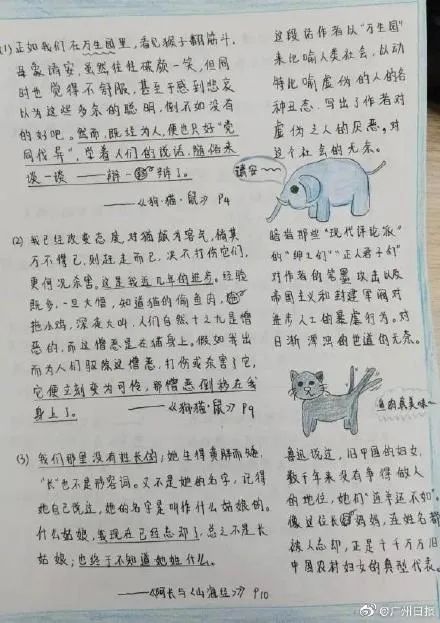 (1) 正如我们在万生园里,看见猴子翻筋斗,
母象请安,虽然往往破颜一笑,但同
时也觉得不舒服,甚至于感到悲哀
以为这些多余的聪明,倒不如没有
的好吧。然而,既经为人,便也只好“党
同伐异”,学着人们的说话,随俗来
谈一谈——辩一辩了。
——《狗·猫·鼠》P4
这段话作者以“万生园”
来比喻人类社会,以动
物比喻虚伪的人的各
种丑态,写出了作者对
虚伪之人的厌恶。对
这个社会的无奈。
请安~~
(2) 我已经改变态度,对猫颇为客气,倘其
万不得已,则赶走而已,决不打伤它们,
更何况杀害。这是我近几年的进步。经验
既多,一旦大悟,知道猫的偷鱼肉,
拖小鸡,深夜大叫,人们自然十之九是憎
恶的,而这憎恶是在猫身上。假如我出
而为人们驱除这憎恶,打伤或杀害了它,
它便立刻变为可怜,那憎恶倒移在我
身上了。
——《狗·猫·鼠》P9
暗指那些“现代评论派”
的“绅士们”“正人君子们”
对作者的笔墨攻击以及
帝国主义和封建军阀对
进步人士的暴虐行为。对
日渐浑浊的世道的无奈。
鱼的真美味~
(3) 我们那里没有姓长的;她生得黄胖而矮,
“长”也不是形容词。又不是她的名字,记得
她自己说过,她的名字是叫作什么姑娘的。
什么姑娘,我现在已经忘却了,总之不是长
姑娘;也终于不知道她姓什么。
——《阿长与《山海经》》P10
鲁迅说过,旧中国的妇女,
数千年来没有争得做人
的地位,她们“连羊还不如”。
像这位长妈妈,连姓名都
被人忘却,正是千千万万旧
中国农村妇女的典型代表。
@广州日报